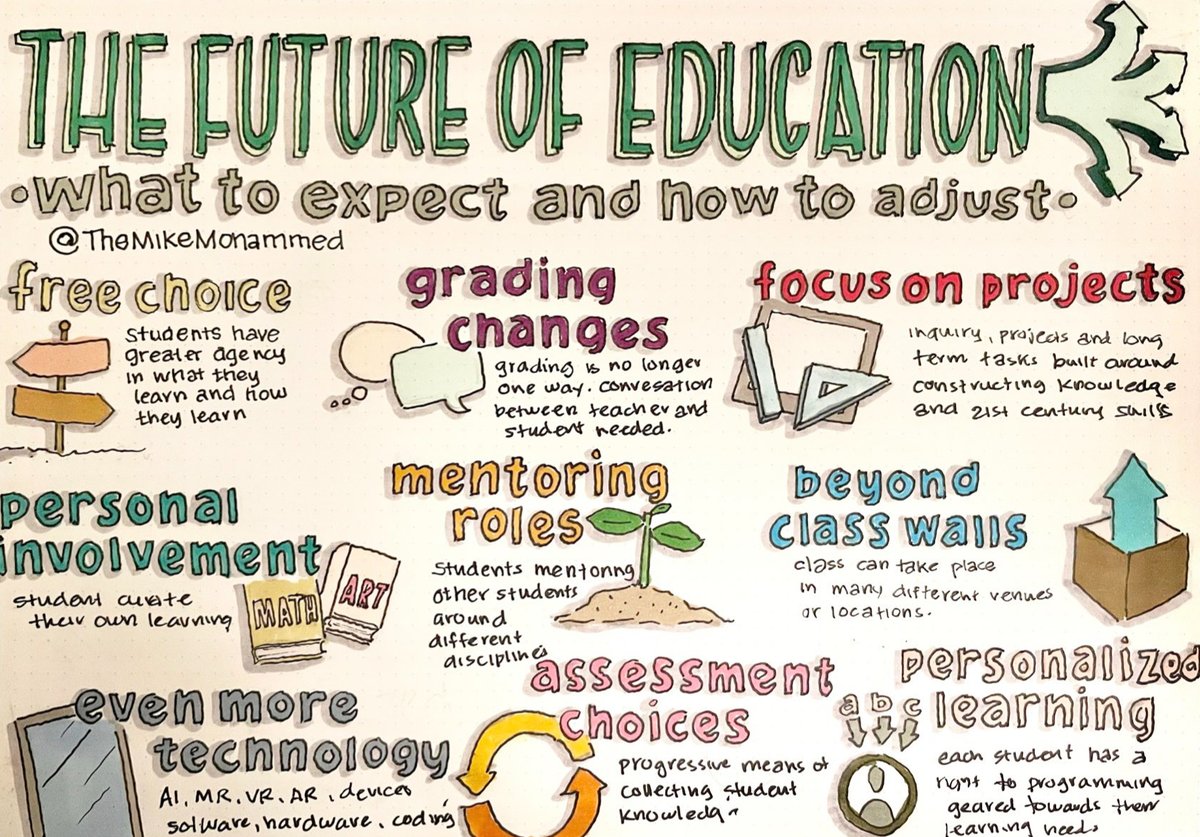 THE FUTURE OF EDUCATION
• what to expect and how to adjust •
@TheMikeMohammed
free choice
students have
greater agency
in what they
learn and how
they learn
grading
changes
grading is no longer
one way. convesation
between teacher and
student needed.
focus on projects
inquiry, projects and long
term tasks built around
constructing knowledge
and 21st century skills
personal
involvement
student curate
their own learning
MATH
ART
mentoring
roles
students mentoring
other students
around
different
disciplines
beyond
class walls
class can take place
in many different venues
or locations.
even more
technology
AI, MR, VR, AR, devices
software, hardware, coding
assessment
choices
progressive means of
collecting student
personalized
learning
a b c
each student has a
right to programming
geared towards their
learning needs